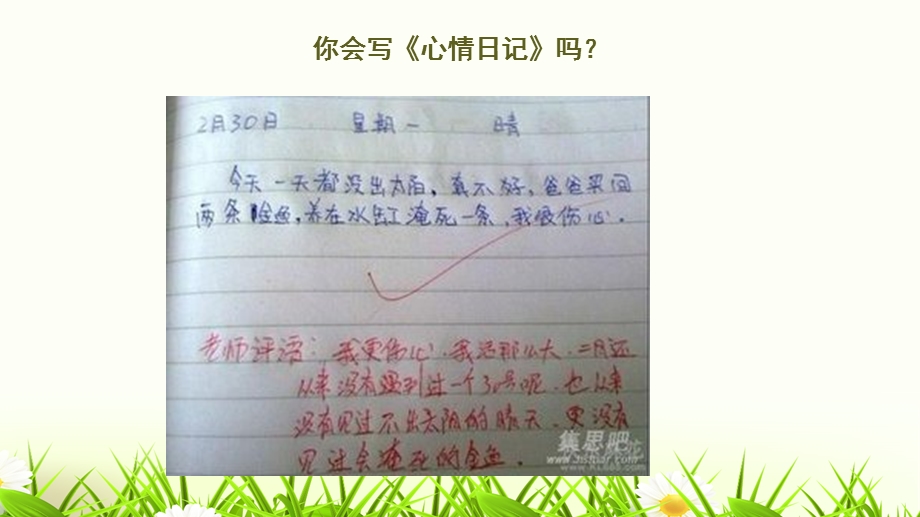 你会写《心情日记》吗？
2月30日 星期一 晴
今天一天都没出太阳，真不好，爸爸买回
两条金鱼，养在水缸淹死一条，我很伤心。
老师评语：我更伤心．我活那么大．二月还
从来没有遇到过一个30号呢．也从来
没有见过不出太阳的晴天．更没有
见过会淹死的金鱼．
集思吧